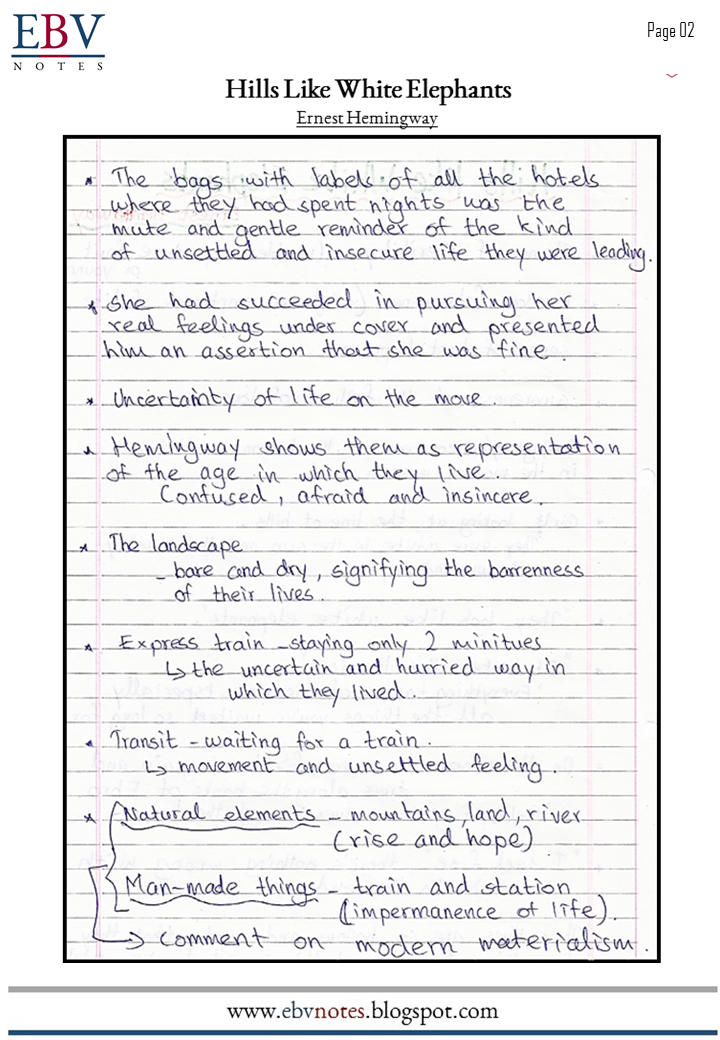 EBV
NOTES
Page 02
Hills Like White Elephants
Ernest Hemingway
* The bags with labels of all the hotels
where they had spent nights was the
mute and gentle reminder of the kind
of unsettled and insecure life they were leading.
* She had succeeded in pursuing her
real feelings under cover and presented
him an assertion that she was fine.
* Uncertainty of life on the move.
* Hemingway shows them as representation
of the age in which they live.
Confused, afraid and insincere.
* The landscape
- bare and dry, signifying the barrenness
of their lives.
* Express train - staying only 2 minitues
↳ the uncertain and hurried way in
which they lived.
* Transit - waiting for a train.
↳ movement and unsettled feeling.
* Natural elements - mountains, land, river
(rise and hope)
Man-made things - train and station
(impermanence of life).
→ Comment on modern materialism.
www.ebvnotes.blogspot.com